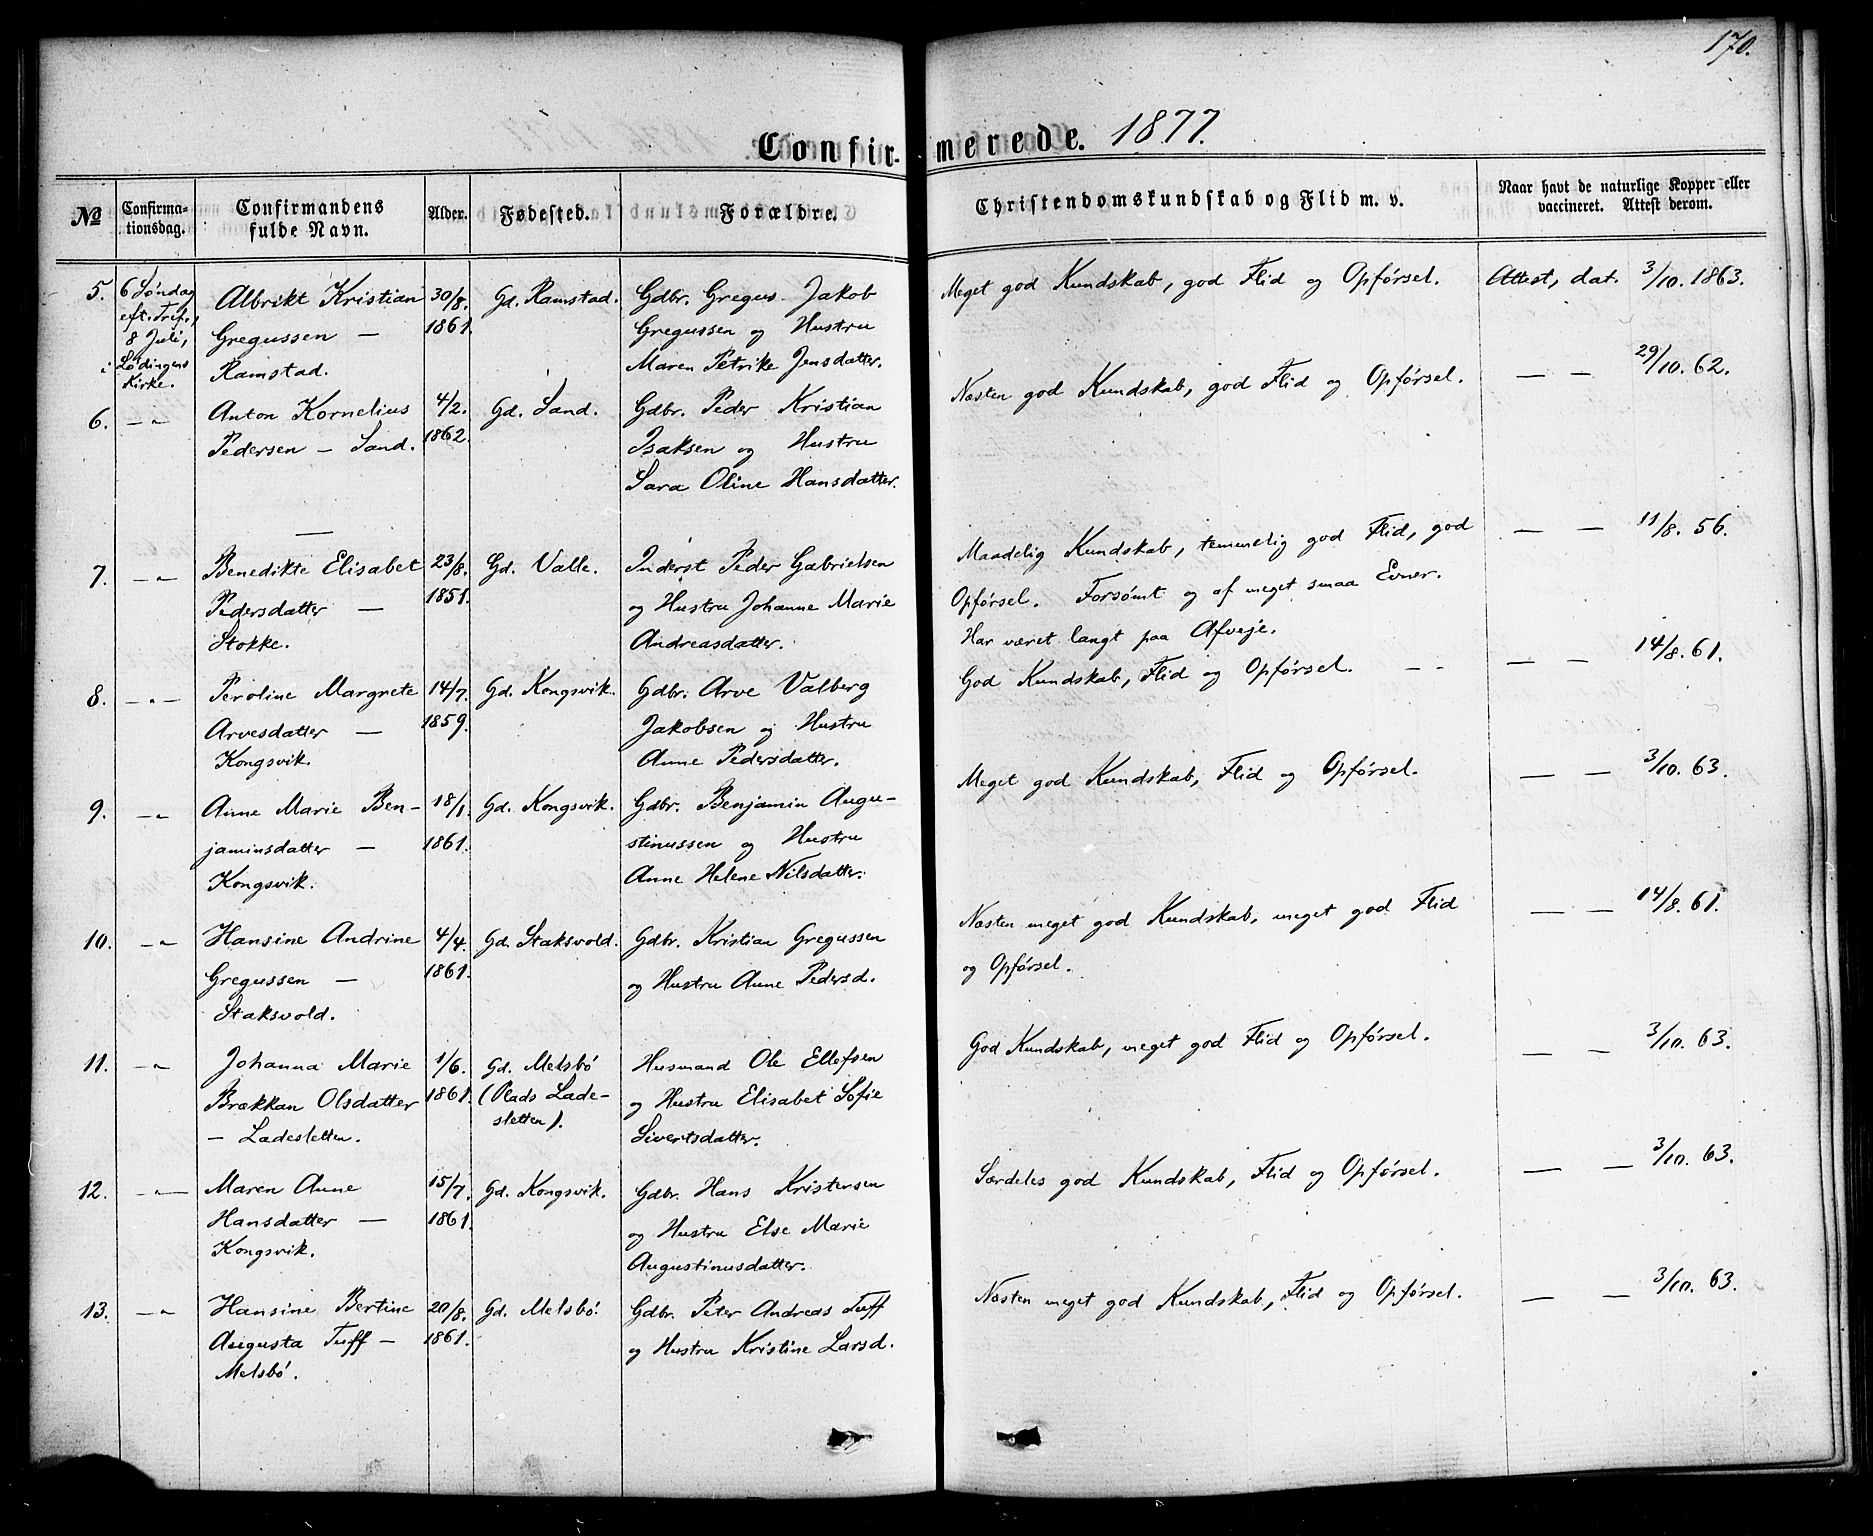 170.
Confirmerede. 1877.
№ Confirma-tionsdag. Confirmandens fulde Navn. Alder. Fødested. Forældre. Christendomskundskab og Flid m. v. Naar havt de naturlige Kopper eller vaccineret. Attest derom.
5. 6 Søndag Albrikt Kristian 30/8. Gd. Ramstad. Gdbr. Gregus Jakob Meget god Kundskab, god Flid og Opførsel. Attest, dat. 3/10. 1863.
eft. Tref., Gregussen — 1861. Gregussen og Hustru
8 Juli, Ramstad. Maren Petrike Jensdatter.
i Lødingens
Kirke.
6. —〃— Anton Kornelius 4/2. Gd. Sand. Gdbr. Peder Kristian Næsten god Kundskab, god Flid og Opførsel. — — 29/10. 62.
Pedersen — Sand. 1862. Isaksen og Hustru
Sara Oline Hansdatter.
—
7. —〃— Benedikte Elisabet 23/8. Gd. Valle. Inderst Peder Gabrielsen Maadelig Kundskab, temmelig god Flid, god — — 11/8. 56.
Pedersdatter — 1851. og Hustru Johanne Marie Opførsel. Forsømt og af meget smaa Evner.
Stokke. Andreasdatter. Har været langt paa Afveje.
8. —〃— Peroline Margrete 14/7. Gd. Kongsvik. Gdbr. Arve Valberg God Kundskab, Flid og Opførsel. — — 14/8. 61.
Arvesdatter — 1859. Jakobsen og Hustru
Kongsvik. Anne Pedersdatter.
9. —〃— Anne Marie Ben- 18/1. Gd. Kongsvik. Gdbr. Benjamin Augu- Meget god Kundskab, Flid og Opførsel. — — 3/10. 63.
jaminsdatter — 1861. stinussen og Hustru
Kongsvik. Anne Helene Nilsdatter.
10. —〃— Hansine Andrine 4/4. Gd. Staksvold. Gdbr. Kristian Gregussen Næsten meget god Kundskab, meget god Flid — — 14/8. 61.
Gregussen — 1861. og Hustru Anne Pedersd. og Opførsel.
Staksvold.
11. —〃— Johanna Marie 1/6. Gd. Melsbø Husmand Ole Ellefsen God Kundskab, meget god Flid og Opførsel. — — 3/10. 63.
Brækkan Olsdatter 1861. (Plads Lade- og Hustru Elisabet Sofie
— Ladesletten. sletten). Sivertsdatter.
12. —〃— Maren Anne 15/7. Gd. Kongsvik. Gdbr. Hans Kristensen Særdeles god Kundskab, Flid og Opførsel. — — 3/10. 63.
Hansdatter — 1861. og Hustru Else Marie
Kongsvik. Augustinusdatter.
13. —〃— Hansine Bertine 20/8. Gd. Melsbø. Gdbr. Peter Andreas Tuff Næsten meget god Kundskab, Flid og Opførsel. — — 3/10. 63.
Augusta Tuff — 1861. og Hustru Kristine Larsd.
Melsbø.